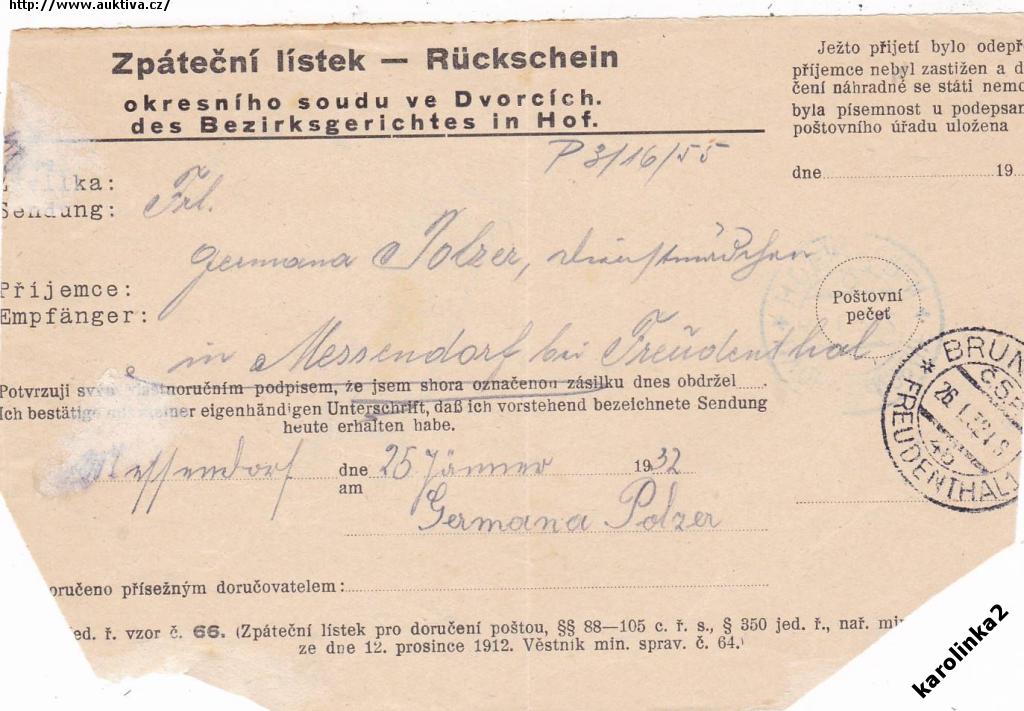 http://www.auktiva.cz/
Zpáteční lístek — Rückschein
okresního soudu ve Dvorcích.
des Bezirksgerichtes in Hof.
P 3/16/55
Ježto přijetí bylo odepř
příjemce nebyl zastižen a d
čení náhradně se státi nemo
byla písemnost u podepsan
poštovního úřadu uložena
dne 19
lka:
Sendung: Frl.
Germana Polzer, Dienstmädchen
Příjemce:
Empfänger:
in Messendorf bei Freudenthal
Poštovní
pečeť
Potvrzuji svým vlastnoručním podpisem, že jsem shora označenou zásilku dnes obdržel
Ich bestätige mit meiner eigenhändigen Unterschrift, daß ich vorstehend bezeichnete Sendung
heute erhalten habe.
Messendorf dne 25 Jänner 1932
am
Germana Polzer
BRUN
ČSR
26. I. 32
4b
FREUDENTHAL 1
oručeno přísežným doručovatelem:
jed. ř. vzor č. 66. (Zpáteční lístek pro doručení poštou, §§ 88—105 c. ř. s., § 350 jed. ř., nař. min
ze dne 12. prosince 1912. Věstník min. sprav. č. 64.)
karolinka2